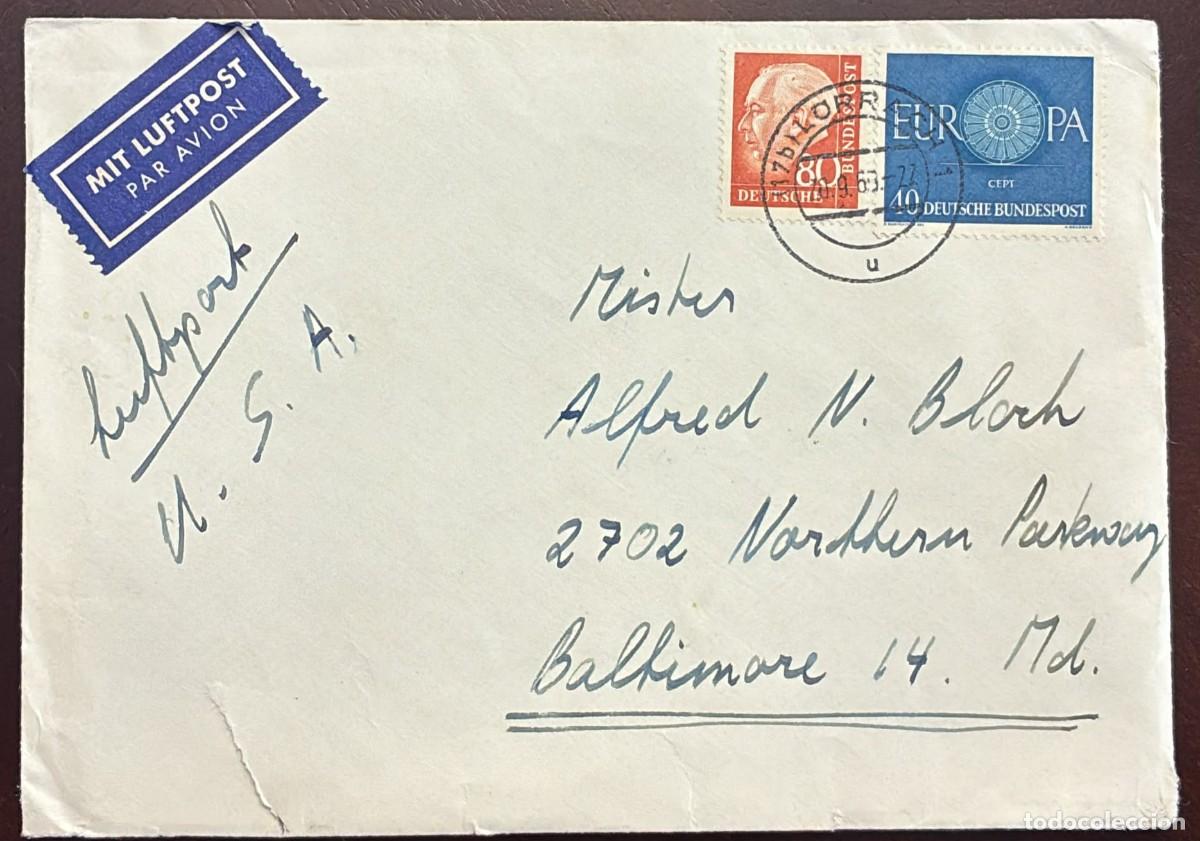 MIT LUFTPOST
PAR AVION
80
DEUTSCHE
BUNDESPOST
EUROPA
CEPT
40 DEUTSCHE BUNDESPOST
(17b) LÖRRACH
u
Luftpost
U. S. A.
Mister
Alfred N. Bloch
2702 Northern Parkway
Baltimore 14. Md.
todocoleccion